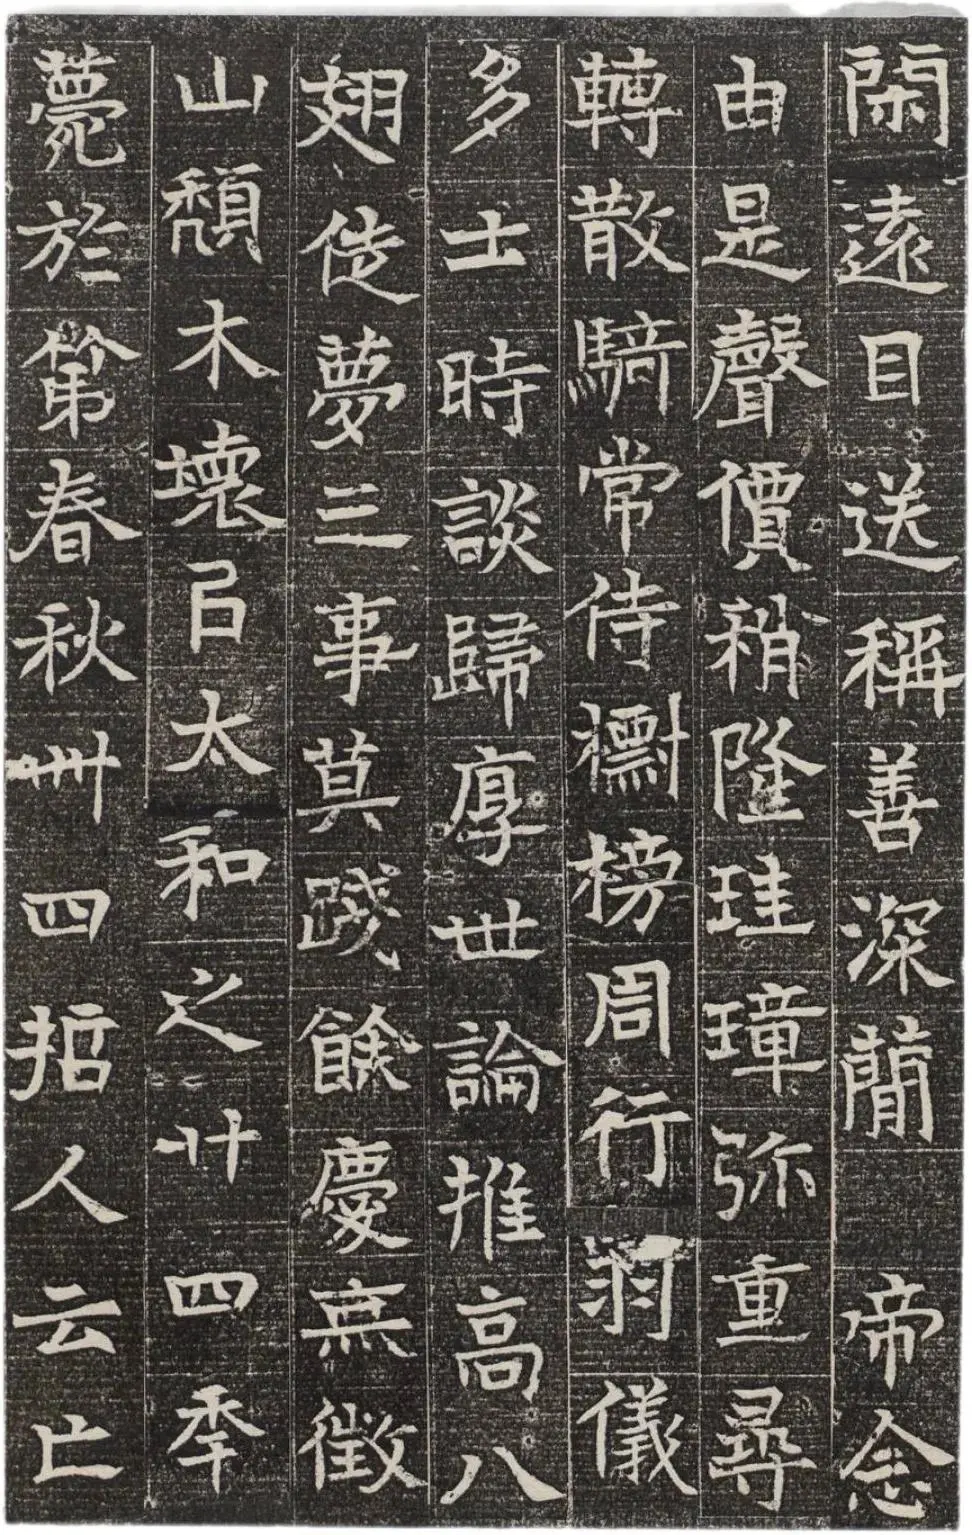 閑遠目送稱善深簡　帝念
由是聲價稍隆珪璋弥重尋
轉散騎常侍檦榜周行羽儀
多士時談歸厚世論推高八
翅徒夢三事莫踐餘慶無徵
山頹木壞㠯太和之廿四秊
薨於第春秋卅四哲人云亡